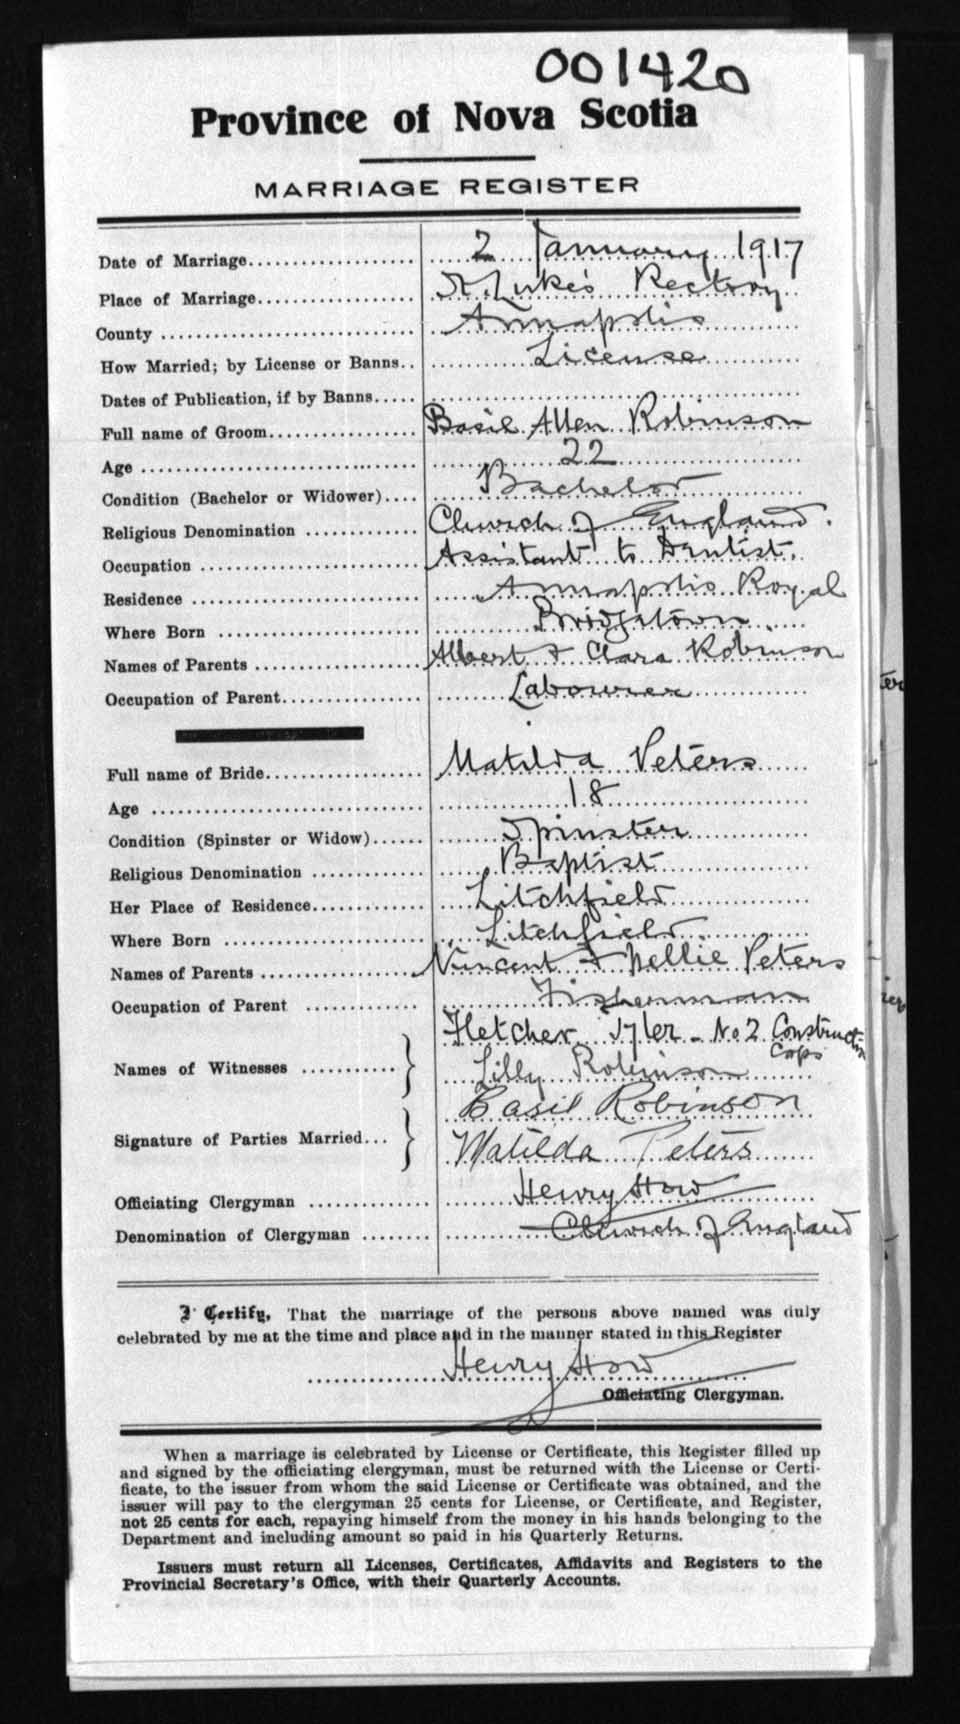 001420
Province of Nova Scotia
MARRIAGE REGISTER
Date of Marriage.................. 2 January 1917
Place of Marriage.................. St. Luke's Rectory
County .................. Annapolis
How Married; by License or Banns.. License
Dates of Publication, if by Banns.....
Full name of Groom.................. Basil Allen Robinson
Age .................. 22
Condition (Bachelor or Widower).... Bachelor
Religious Denomination ............. Church of England.
Occupation .................. Assistant to Dentist.
Residence .................. Annapolis Royal
Where Born .................. Bridgetown
Names of Parents .................. Albert & Clara Robinson
Occupation of Parent.................. Labourer
Full name of Bride.................. Matilda Peters
Age .................. 18
Condition (Spinster or Widow)...... Spinster
Religious Denomination ............. Baptist
Her Place of Residence............. Litchfield
Where Born .................. Litchfield
Names of Parents .................. Vincent & Nellie Peters
Occupation of Parent ............. Fisherman
Names of Witnesses ........... Fletcher Tyler - No 2 Construction
Cops
Lilly Robinson
Signature of Parties Married... Basil Robinson
Matilda Peters
Officiating Clergyman ............. Henry How
Denomination of Clergyman ........ Church of England
I Certify, That the marriage of the persons above named was duly
celebrated by me at the time and place and in the manner stated in this Register
Henry How
Officiating Clergyman.
When a marriage is celebrated by License or Certificate, this Register filled up
and signed by the officiating clergyman, must be returned with the License or Certi-
ficate, to the issuer from whom the said License or Certificate was obtained, and the
issuer will pay to the clergyman 25 cents for License, or Certificate, and Register,
not 25 cents for each, repaying himself from the money in his hands belonging to the
Department and including amount so paid in his Quarterly Returns.
Issuers must return all Licenses, Certificates, Affidavits and Registers to the
Provincial Secretary's Office, with their Quarterly Accounts.